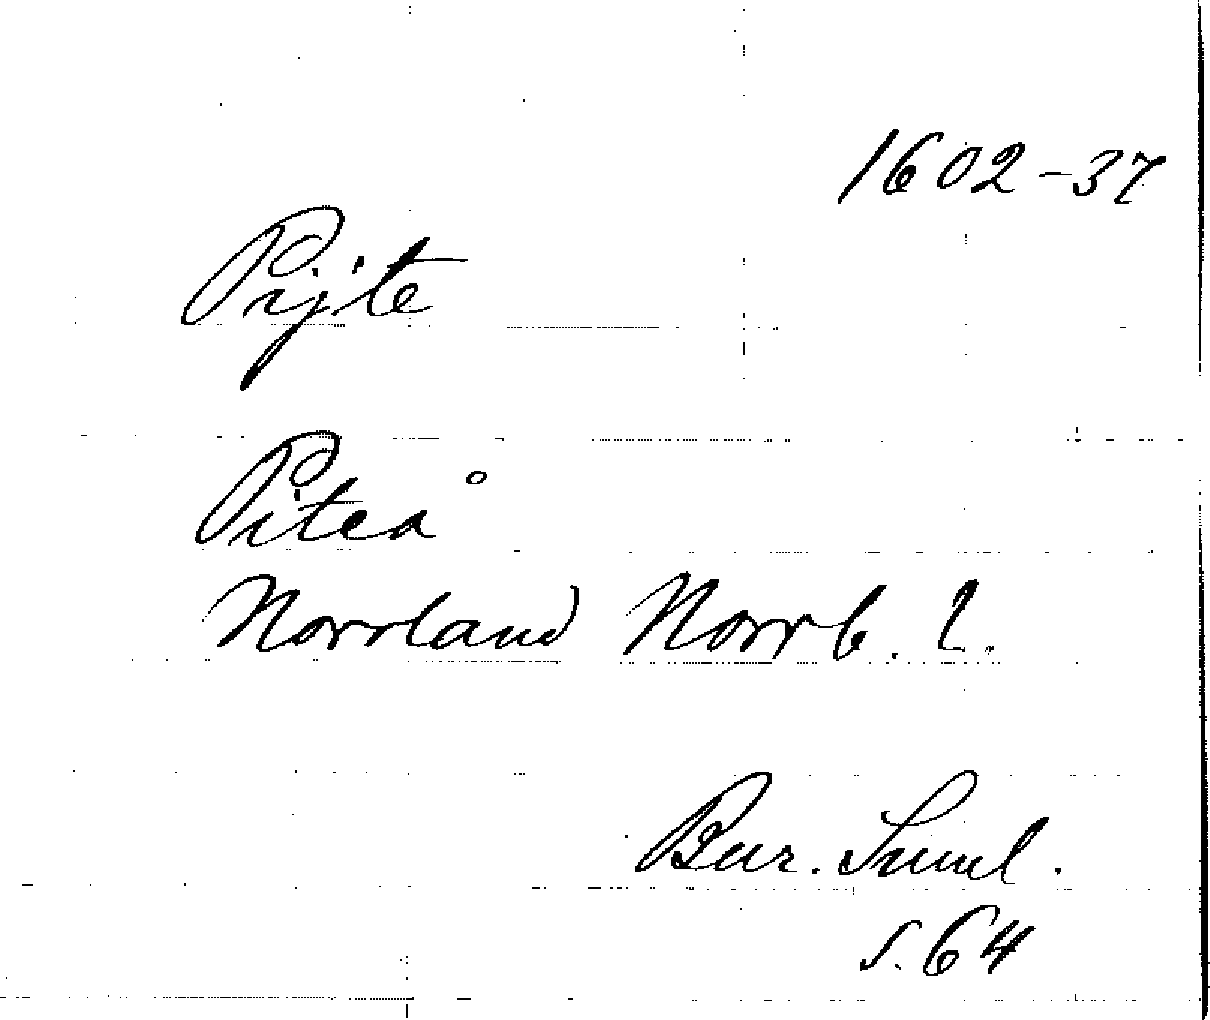 1602-37
Pijte
Piteå
Norrland Norrb. l.
Bur. Suml.
s. 64